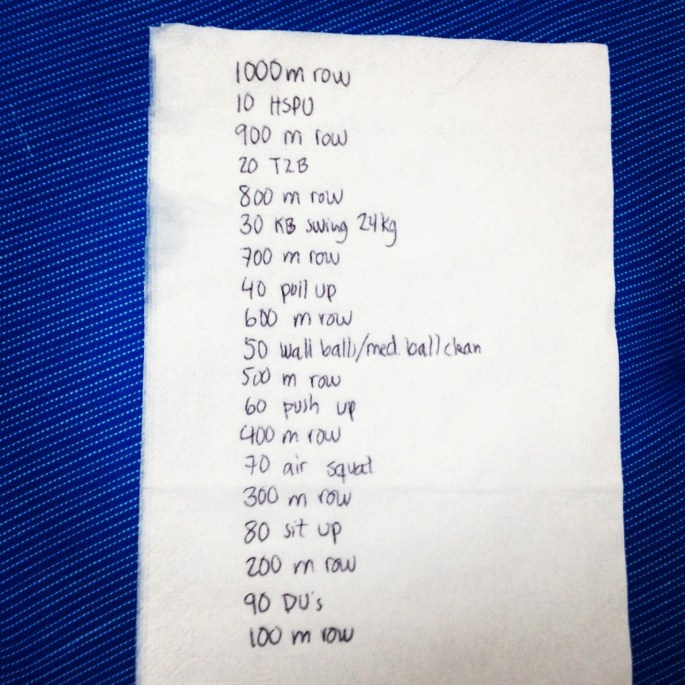 1000 m row
10 HSPU
900 m row
20 T2B
800 m row
30 KB swing 24kg
700 m row
40 pull up
600 m row
50 wall balls/med. ball clean
500 m row
60 push up
400 m row
70 air squat
300 m row
80 sit up
200 m row
90 DU's
100 m row